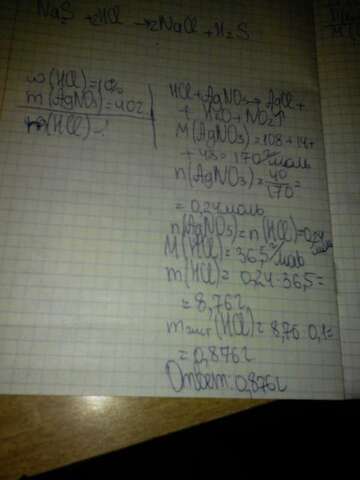 Na₂S + 2HCl → 2NaCl + H₂S
w(HCl) = 10%
m(AgNO₃) = 40г
m(HCl) - ?
HCl + AgNO₃ → AgCl +
+ H₂O + NO₂↑
M(AgNO₃) = 108 + 14 +
+ 48 = 170 г/моль
n(AgNO₃) = 40/170 =
= 0,24 моль
n(AgNO₃) = n(HCl) = 0,24 моль
M(HCl) = 36,5 г/моль
m(HCl) = 0,24 · 36,5 =
= 8,76г
(HCl) = 8,76 · 0,1 =
= 0,876г
Ответ: 0,876г